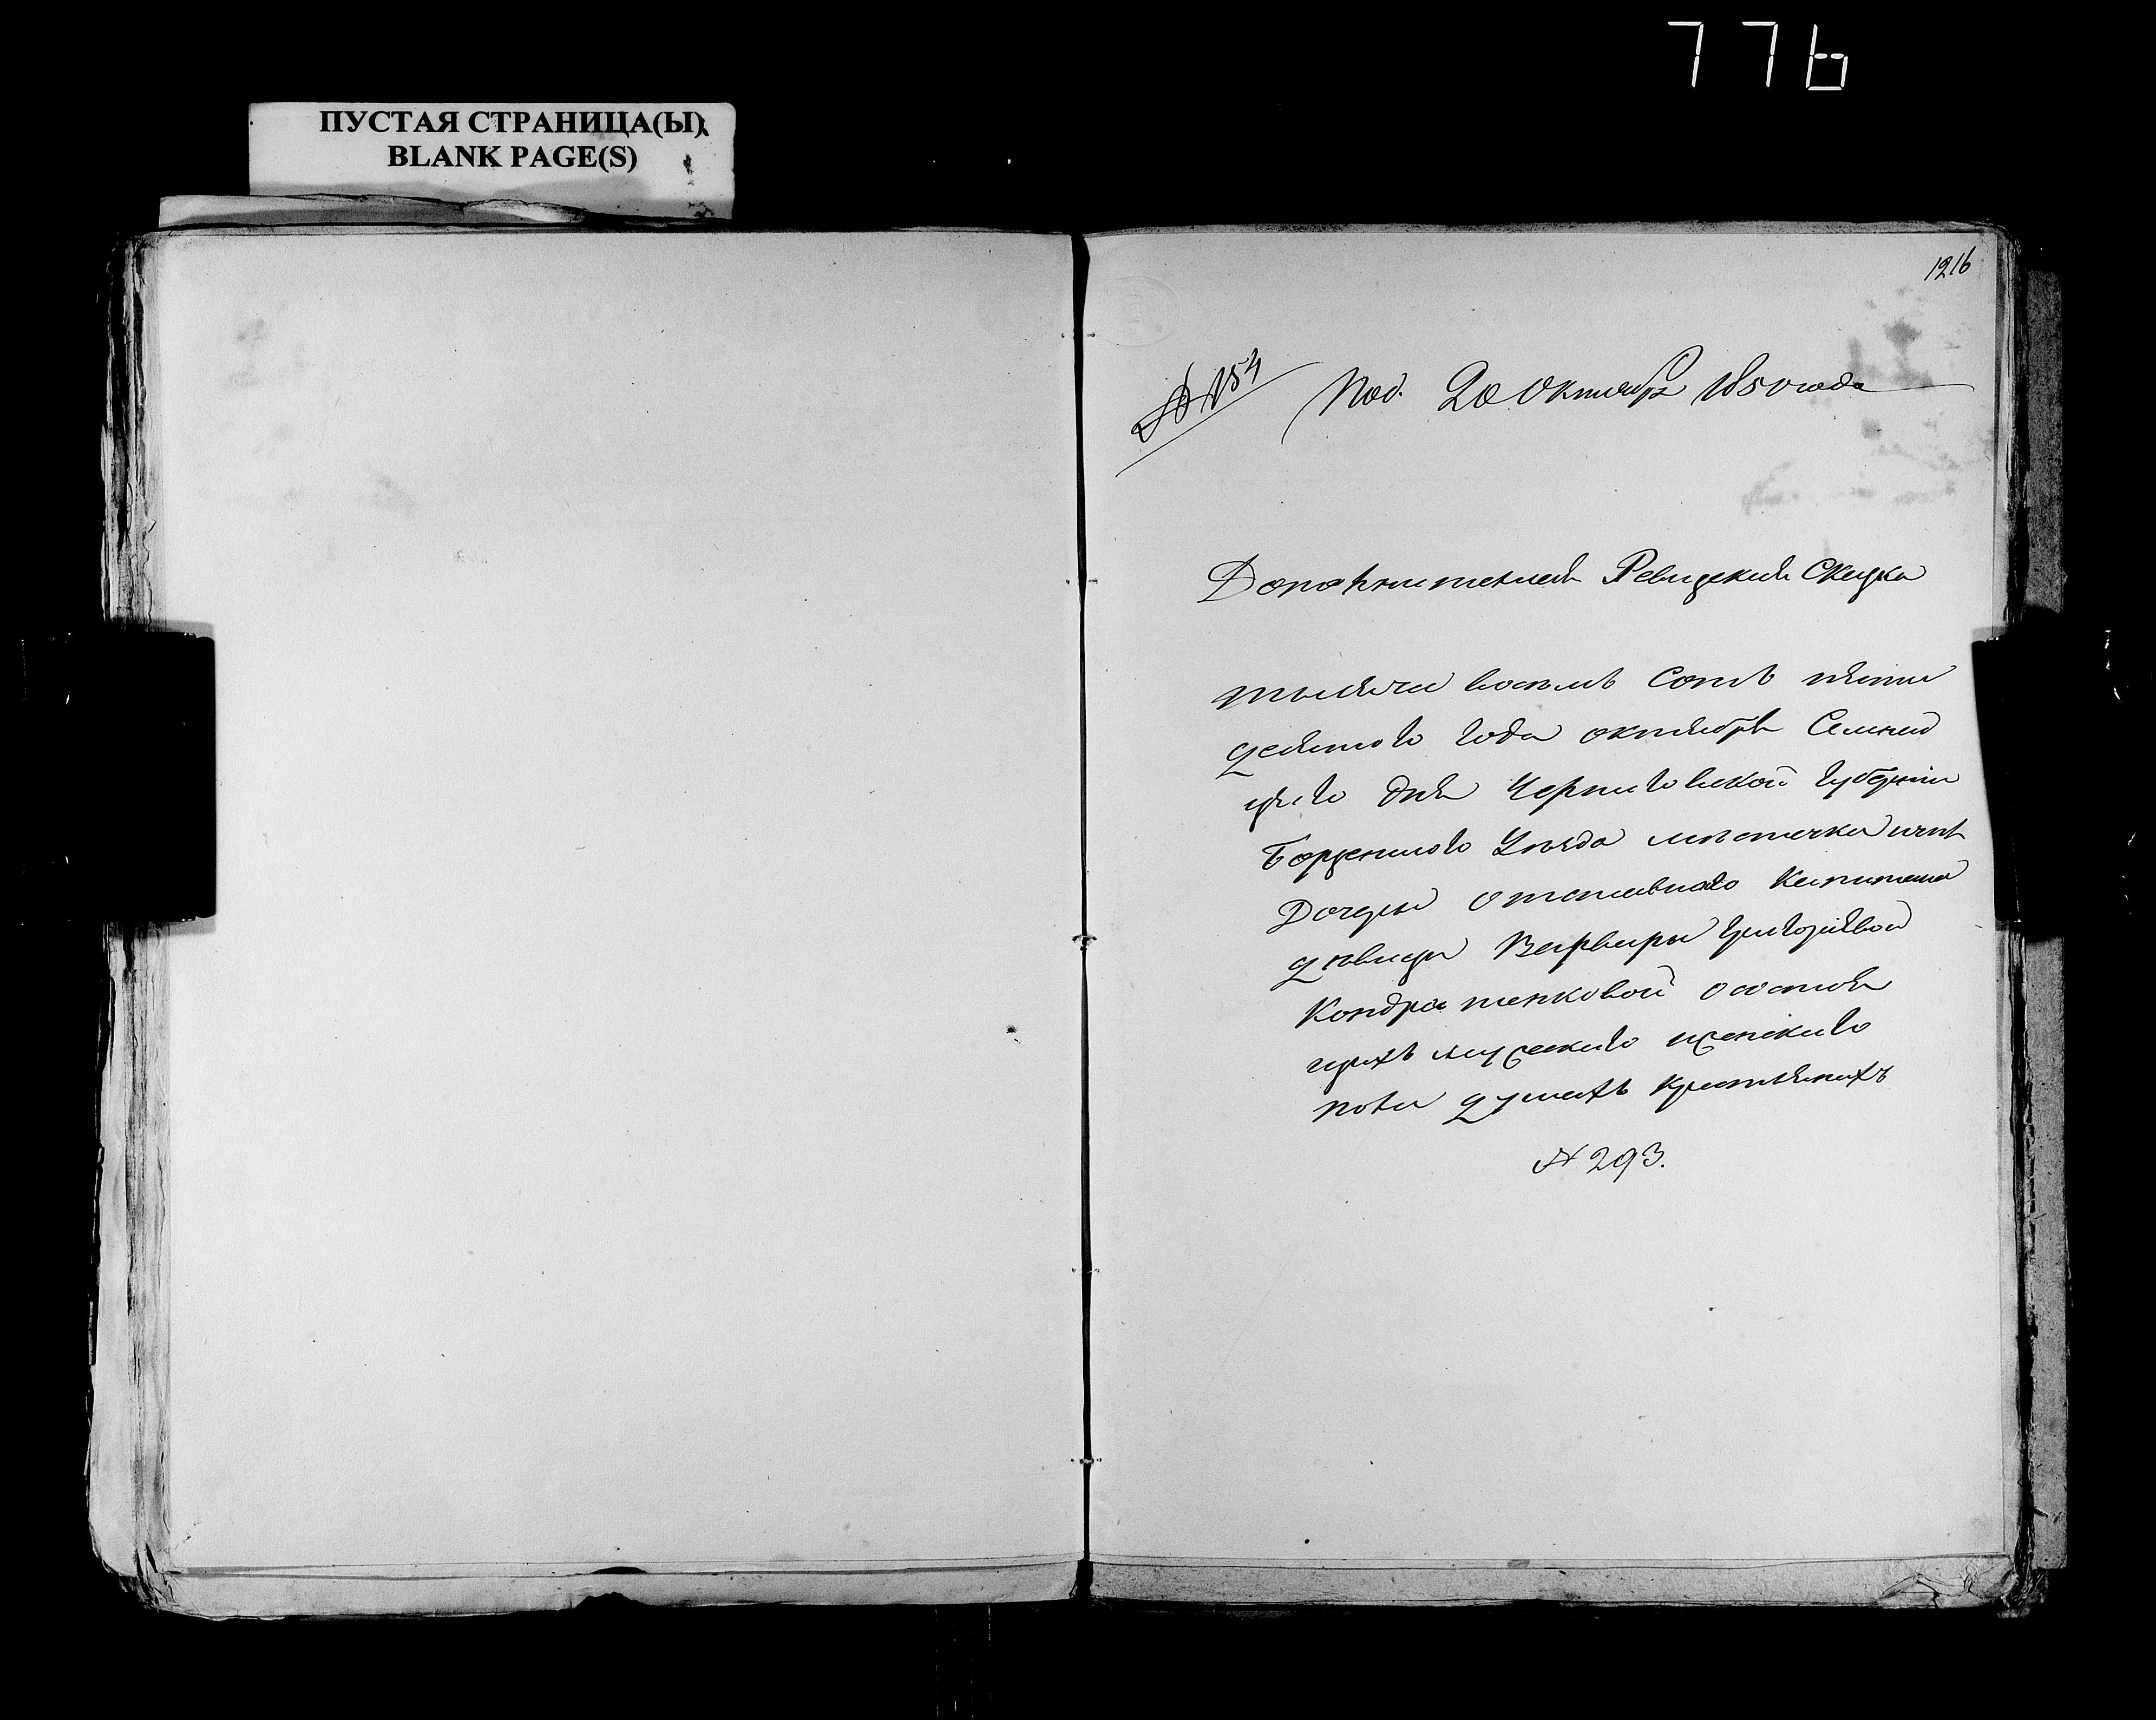 776
ПУСТАЯ СТРАНИЦА(Ы)
BLANK PAGE(S)
1216
Под. 20 Октября 1850 года
Дополнителная Ревизская Сказка
тысяча восемь сотъ пяти
десятого года октября Семнад
цатого дня Черниговской Губерніи
Борзенского Уезда местечка ични
Дочери отставного Капитана
девицы Варвары Григоріевой
Кондратенковой о состоя
щихъ мужеского иженского
пола душахъ крестьянахъ
№ 293.